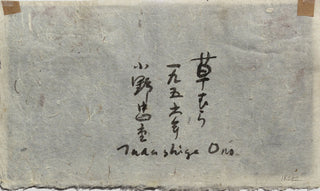 草むら
一九五六年
小野忠重
Tadashige Ono.